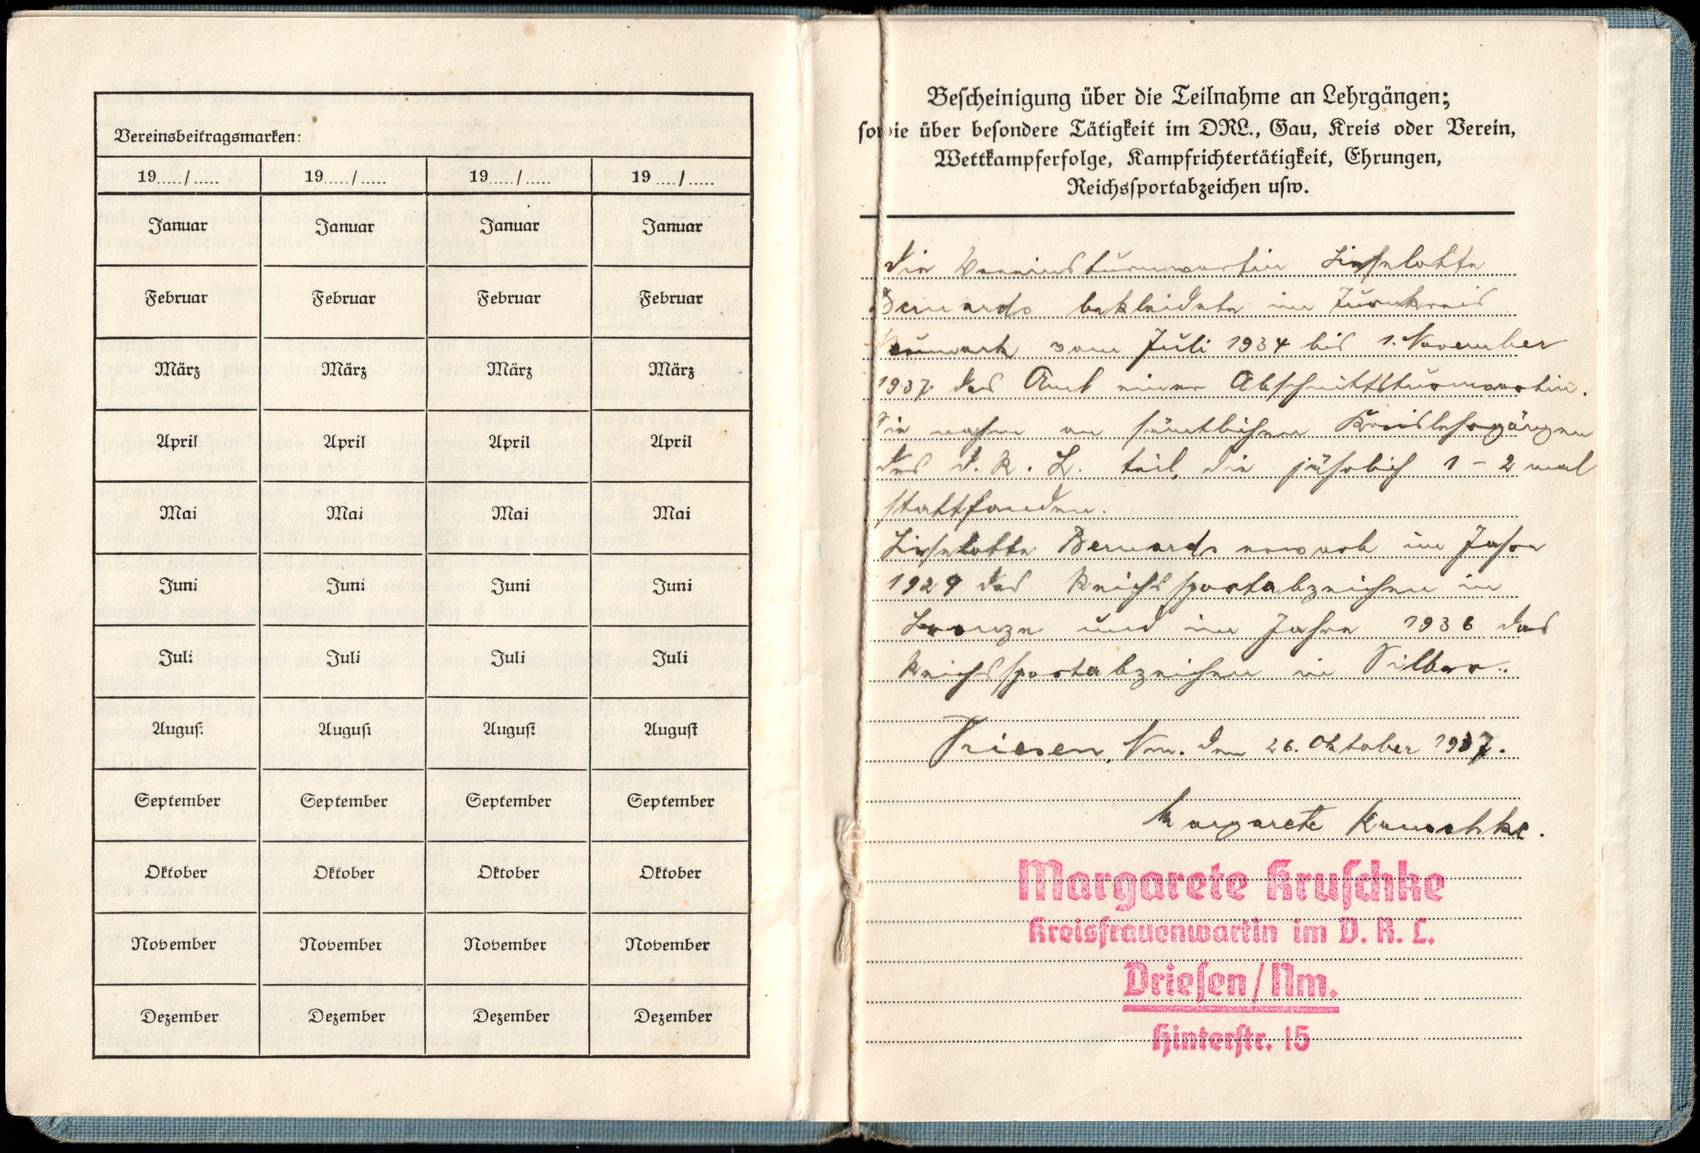 Vereinsbeitragsmarken:
19...../..... 19...../..... 19...../..... 19 ..../.....
Januar Januar Januar Januar
Februar Februar Februar Februar
März März März März
April April April April
Mai Mai Mai Mai
Juni Juni Juni Juni
Juli Juli Juli Juli
August August August August
September September September September
Oktober Oktober Oktober Oktober
November November November November
Dezember Dezember Dezember Dezember
Bescheinigung über die Teilnahme an Lehrgängen;
sowie über besondere Tätigkeit im DRL., Gau, Kreis oder Verein,
Wettkampferfolge, Kampfrichtertätigkeit, Ehrungen,
Reichssportabzeichen usw.
Die Vereinsturnwartin Lieselotte
Bernardo bekleidete im Turnkreis
Neumark vom Juli 1934 bis 1. November
1937 das Amt einer Abschnittsturnwartin.
Sie nahm an sämtlichen Kreislehrgängen
des D. R. L. teil, die jährlich 1 - 2 mal
stattfanden.
Lieselotte Bernardo erwarb im Jahre
1929 das Reichssportabzeichen in
Bronze und im Jahre 1936 das
Reichssportabzeichen in Silber.
Driesen, Nm. den 26. Oktober 1937.
Margarete Kruschke.
Margarete Kruschke
Kreisfrauenwartin im D. R. L.
Driesen/Nm.
Hinterstr. 15